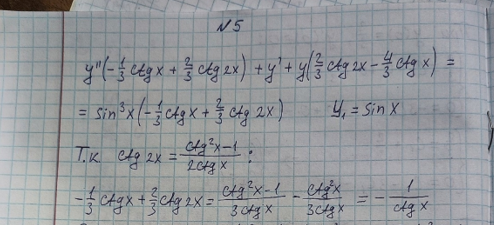 №5
y''(-1/3 ctg x + 2/3 ctg 2x) + y' + y(2/3 ctg 2x - 4/3 ctg x) =
= sin³x(-1/3 ctg x + 2/3 ctg 2x) y₁ = sin x
Т.к. ctg 2x = (ctg²x-1)/(2ctg x) :
-1/3 ctg x + 2/3 ctg 2x = (ctg²x-1)/(3ctg x) - ctg²x/(3ctg x) = - 1/(ctg x)